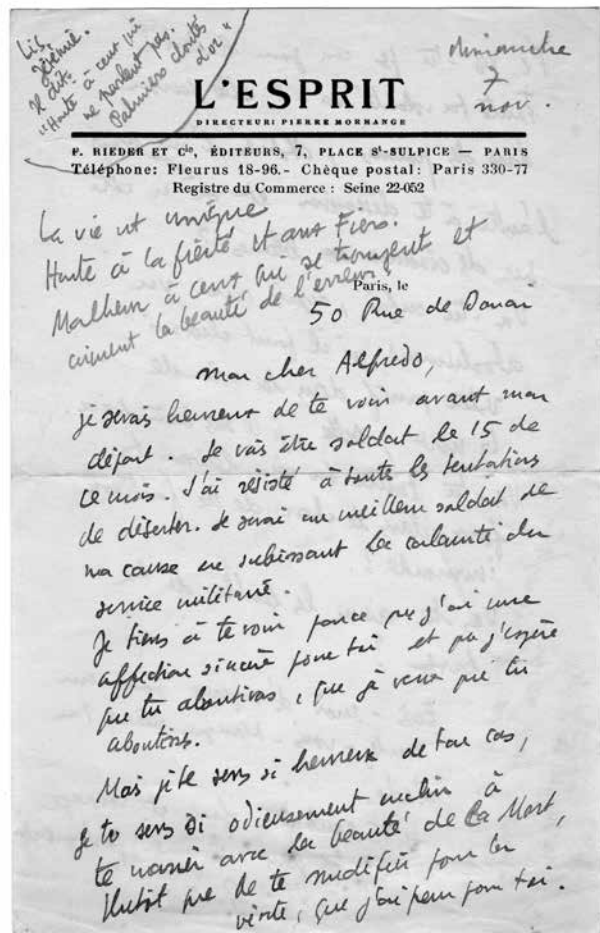 Lis,
Jérémie.
Il dit:
"Honte à ceux qui
ne parlent pas.
Palmiers cloutés
d'or"
dimanche
7
nov.
L'ESPRIT
DIRECTEUR: PIERRE MORHANGE
F. RIEDER ET Cie, ÉDITEURS, 7, PLACE St-SULPICE — PARIS
Téléphone: Fleurus 18-96.- Chèque postal: Paris 330-77
Registre du Commerce : Seine 22-052
La vie est unique
Honte à la fierté et aux Fiers.
Malheur à ceux qui se trompent et
aiment la beauté de l'erreur
Paris, le
50 Rue de Douai
mon cher Alfredo,
je serais heureux de te voir avant mon
départ. Je vais être soldat le 15 de
ce mois. J'ai résisté à toutes les tentations
de déserter. Je serai un meilleur soldat de
ma cause en subissant la calamité du
service militaire.
Je tiens à te voir parce que j'ai une
affection sincère pour toi et que j'espère
que tu aboutiras, que je veux que tu
aboutisses.
Mais je te sens si heureux de ton cas,
je te sens si odieusement enclin à
te marier avec la beauté de la Mort,
plutôt que de te modifier pour la
vérité, que j'ai peur pour toi.